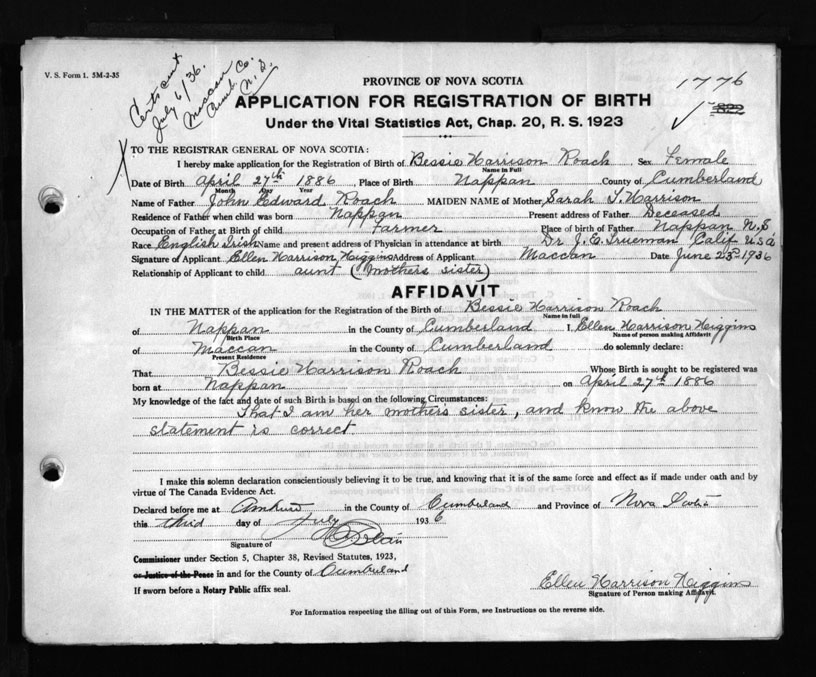 V. S. Form 1. 5M-2-35
Cert sent
July 6/36.
Maccan
Cumb. Co.
N. S.
1776
1822
PROVINCE OF NOVA SCOTIA
APPLICATION FOR REGISTRATION OF BIRTH
Under the Vital Statistics Act, Chap. 20, R. S. 1923
TO THE REGISTRAR GENERAL OF NOVA SCOTIA:
I hereby make application for the Registration of Birth of Bessie Harrison Roach, Sex Female
Name in Full
Date of Birth April 27th 1886, Place of Birth Nappan County of Cumberland
Month Day Year
Name of Father John Edward Roach MAIDEN NAME of Mother, Sarah T. Harrison
Residence of Father when child was born Nappan Present address of Father Deceased
Occupation of Father at Birth of child Farmer Place of birth of Father Nappan N.S
Race English Irish Name and present address of Physician in attendance at birth Dr J. E. Trueman Calif U.S.A
Signature of Applicant Ellen Harrison Higgins Address of Applicant Maccan Date June 23rd 1936
Relationship of Applicant to child aunt (mothers sister)
AFFIDAVIT
IN THE MATTER of the application for the Registration of the Birth of Bessie Harrison Roach
Name in full
of Nappan in the County of Cumberland I, Ellen Harrison Higgins
Birth Place Name of person making Affidavit
of Maccan in the County of Cumberland do solemnly declare:
Present Residence
That Bessie Harrison Roach Whose Birth is sought to be registered was
born at Nappan on April 27th 1886
My knowledge of the fact and date of such Birth is based on the following Circumstances:
That I am her mothers sister, and know the above
statement is correct
I make this solemn declaration conscientiously believing it to be true, and knowing that it is of the same force and effect as if made under oath and by
virtue of The Canada Evidence Act.
Declared before me at Amherst in the County of Cumberland and Province of Nova Scotia
this third day of July 1936
Signature of
Commissioner under Section 5, Chapter 38, Revised Statutes, 1923,
or Justice of the Peace in and for the County of Cumberland
If sworn before a Notary Public affix seal.
Ellen Harrison Higgins
Signature of Person making Affidavit.
For Information respecting the filling out of this Form, see Instructions on the reverse side.